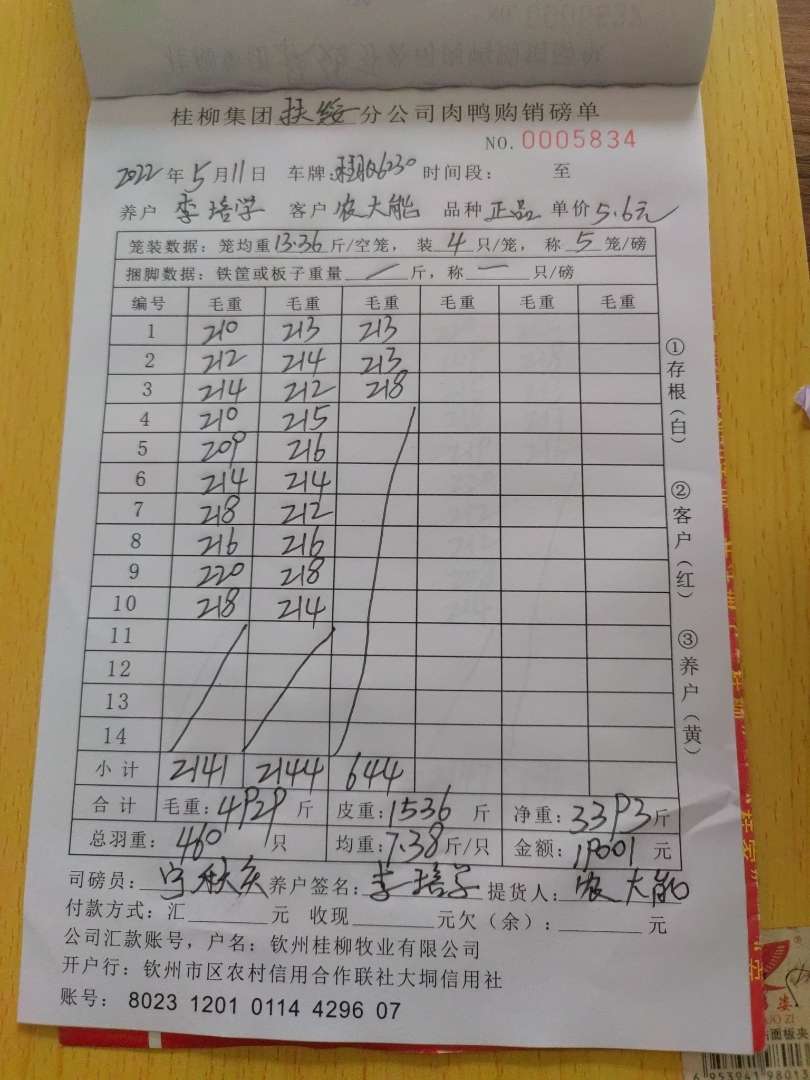 桂柳集团扶绥分公司肉鸭购销磅单
NO. 0005834
2022年5月11日 车牌: 6230 时间段: 至
养户 李培学 客户 农大能 品种 正品 单价 5.6元
笼装数据: 笼均重13.36斤/空笼, 装4只/笼, 称5笼/磅
捆脚数据: 铁筐或板子重量/斤, 称—只/磅
编号 毛重 毛重 毛重 毛重 毛重 毛重
1 210 213 213
2 212 214 213
3 214 212 218
4 210 215
5 209 216
6 214 214
7 218 212
8 216 216
9 220 218
10 218 214
11
12
13
14
小计 2141 2144 644
合计 毛重: 4929斤 皮重: 1536斤 净重: 3393斤
总羽重: 460只 均重: 7.38斤/只 金额: 19001元
司磅员: 养户签名: 李培学 提货人: 农大能
付款方式: 汇 元 收现 元欠(余): 元
公司汇款账号, 户名: 钦州桂柳牧业有限公司
开户行: 钦州市区农村信用合作联社大垌信用社
账号: 8023 1201 0114 4296 07
①存根(白)
②客户(红)
③养户(黄)
面板夹